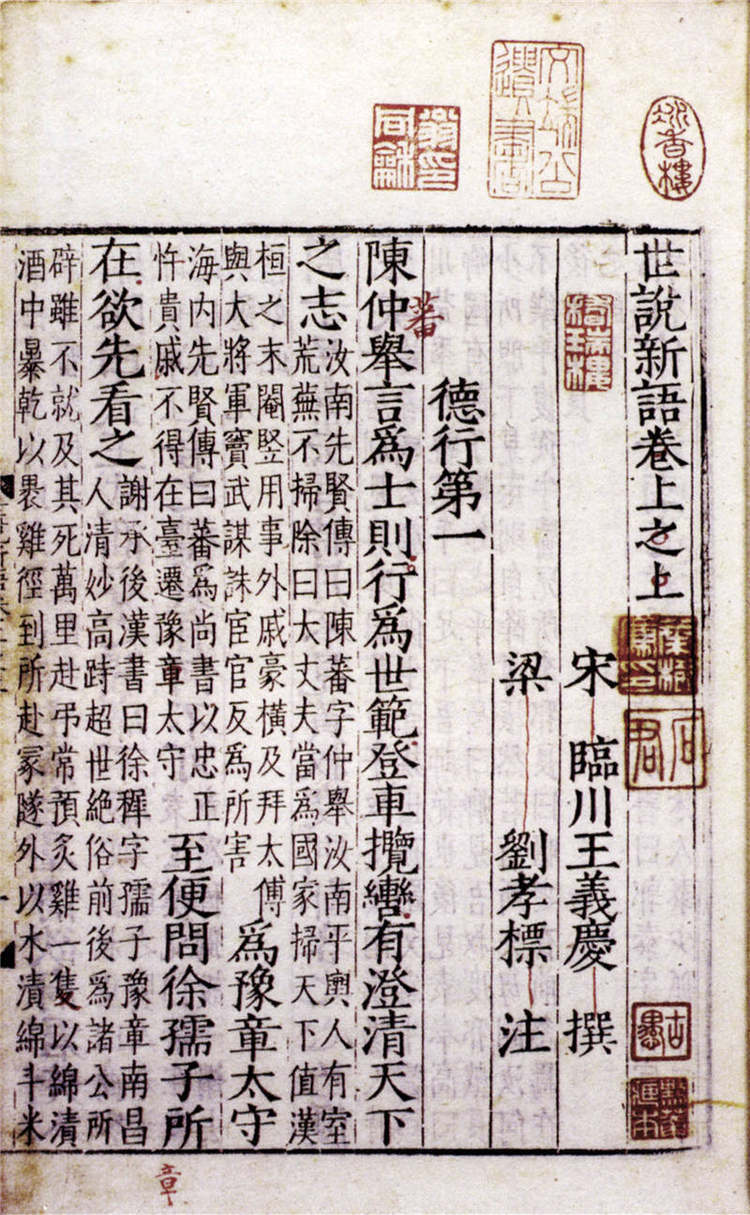 翁同龢印
世說新語卷上之上
石君
古愚
宋 臨川王義慶 撰
梁 劉孝標 注
德行第一
蕃
陳仲舉言爲士則行爲世範登車攬轡有澄清天下
之志
汝南先賢傳曰陳蕃字仲舉汝南平輿人有室
荒蕪不掃除曰大丈夫當爲國家掃天下值漢
桓之末閹豎用事外戚豪橫及拜太傅
與大將軍竇武謀誅宦官反爲所害
爲豫章太守
海内先賢傳曰蕃爲尚書以忠正
忤貴戚不得在臺遷豫章太守
至便問徐孺子所
在欲先看之
謝承後漢書曰徐穉字孺子豫章南昌
人清妙高跱超世絶俗前後爲諸公所
辟雖不就及其死萬里赴弔常預炙雞一隻以綿漬
酒中暴乾以裹雞徑到所赴冢隧外以水漬綿斗米
章